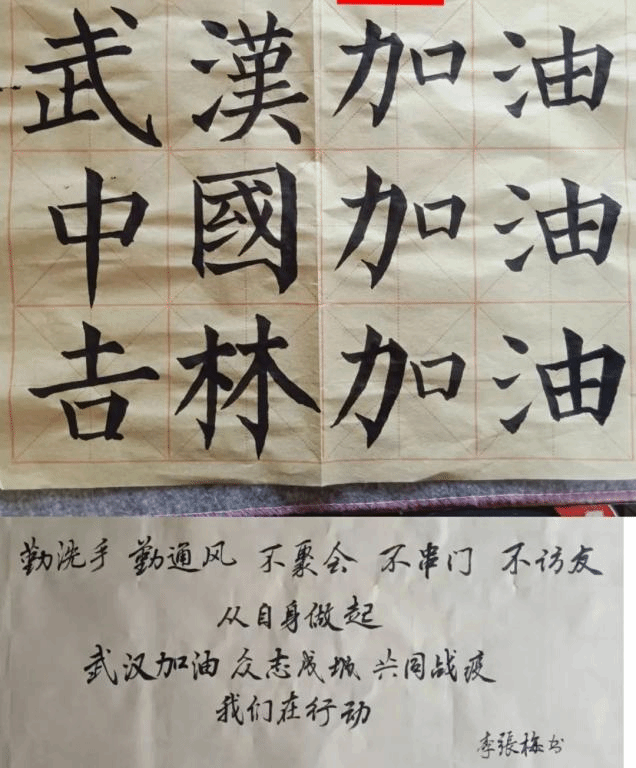 武漢加油
中國加油
吉林加油
勤洗手 勤通风 不聚会 不串门 不访友
从自身做起
武汉加油 众志成城 共同战疫
我们在行动
李張梅书